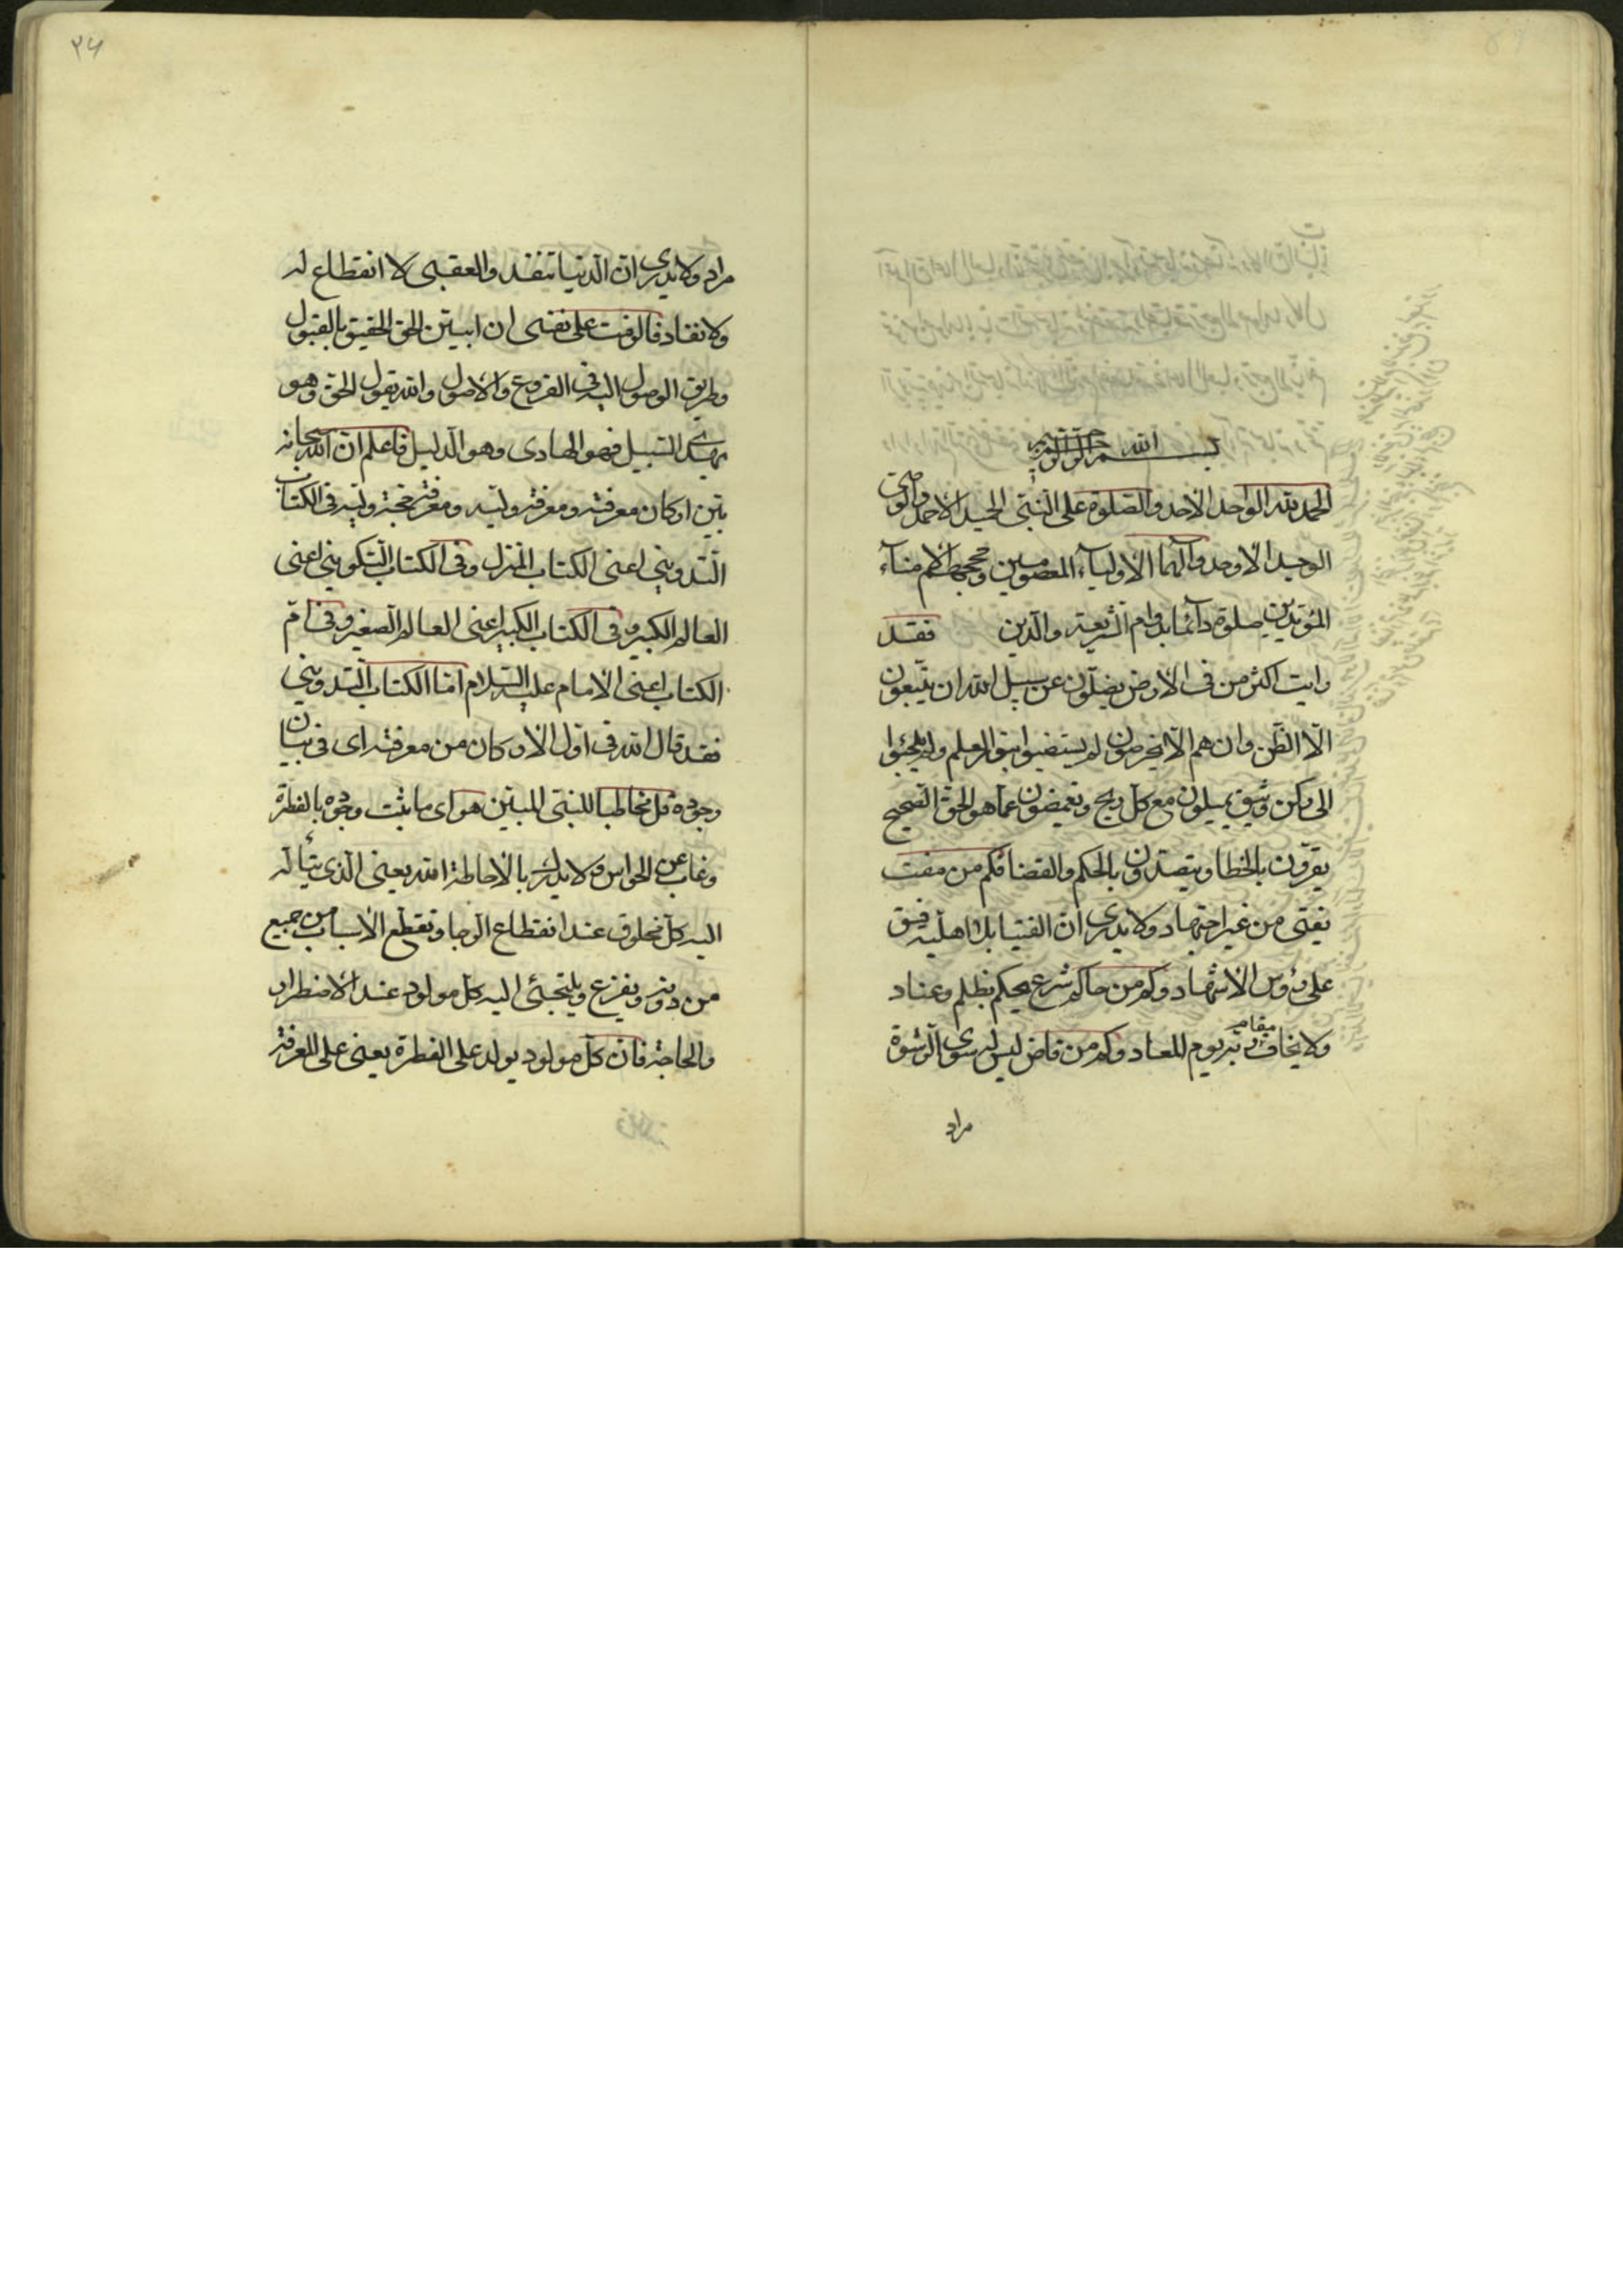 بسم الله الرحمن الرحيم
الحمد لله الواحد الاحد والصلوة على النبي الحميد الاحمد والوصي
الوحيد الاوحد وآلهما الاولياء المعصومين وحججهم الامناء
المؤيدين صلوة دائما بدوام الشريعة والدين فقد
رايت اكثر من في الارض يضلون عن سبيل الله ان يتبعون
الا الظن وان هم الا يخرصون لم يستضيئوا بنور العلم ولم يلجئوا
الى ركن وثيق يميلون مع كل ريح ويغمضون عما هو الحق الصحيح
يقرون بالخطا ويتصدون بالحكم والقضا فكم من مفت
يفتي من غير اجتهاد ولا يدري ان الفتيا بلا اهلية فسق
على رؤس الاشهاد وكم من حاكم شرع يحكم بظلم وعناد
ولا يخاف مقام ربه يوم المعاد وكم من قاض ليس له سوى الرشوة
مراد
٢٤
مراد ولا يدرى ان الدنيا تنفد والعقبى لا انقطاع له
ولا نفاد فالوقت على نفسى ان ابين الحق الحقيق بالقبول
وطريق الوصول اليه في الفروع والاصول والله يقول الحق وهو
يهدى السبيل فهو الهادى وهو الدليل فاعلم ان الله سبحانه
بين اركان معرفته ومعرفة وليه ومعرفة حجة وليه في الكتاب
التدوينى اعنى الكتاب المنزل وفى الكتاب التكوينى اعنى
العالم الكبير وفى الكتاب الكبير اعنى العالم الصغير وفى ام
الكتاب اعنى الامام عليه السلام اما الكتاب التدوينى
فقد قال الله في اول الاركان من معرفته اى في بيان
وجوده قل مخاطبا للنبى المبين هو اى ما يثبت وجوده بالفطرة
وغاب عن الحواس ولا يدرك بالاحاطة الله يعنى الذى يتأله
اليه كل مخلوق عند انقطاع الرجا وتقطع الاسباب من جميع
من دونه ويفزع ويلتجئ اليه كل مولود عند الاضطرار
والحاجة فان كل مولود يولد على الفطرة يعنى على المعرفة